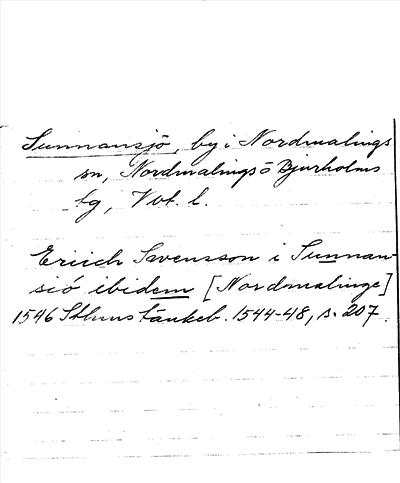 Sunnansjö, by i Nordmalings
sn, Nordmalings o Bjurholms
tg, Vbt. l.
Eriich Svensson i Sunnan-
sió ibidem [Nordmalinge]
1546 Sthms tänkeb. 1544-48, s. 207.